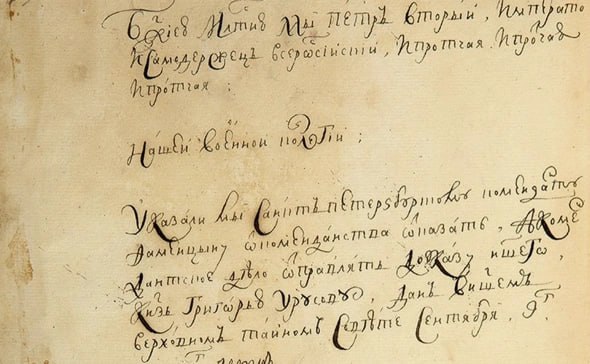 Бжїею Млтию Мы Пéтръ вторый, Императо
И Самодержецъ всерѡсиїскїй, И протчая И прочая
И протчая :
Нашей военной колегїи ;
Указали мы Санктъ питеръбурского коменданта
от комендантства отказать, А коме
дантское дѣло отправлять до указу
Кнзь Григорью Урусову, Данъ в
верховномъ тайномъ Совѣте Сентября, 9г